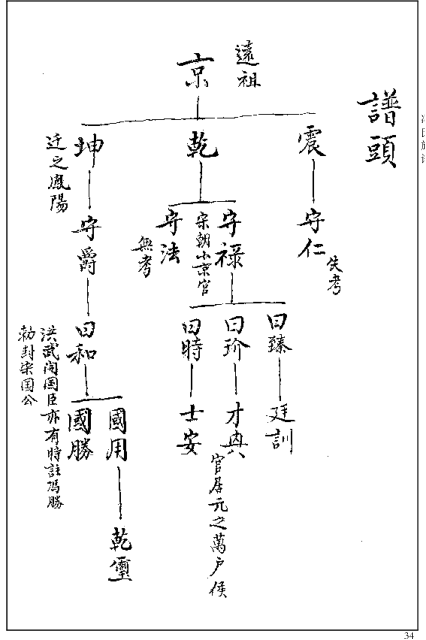 譜頭
遠祖
京
震
乾
坤
迁之鳳陽
守仁
失考
守禄
宋朝小京官
守法
無考
守爵
曰臻
曰玠
曰時
曰和
廷訓
才興
官居元之萬户侯
士安
國用
國勝
洪武闰国臣亦有時註馮勝
勅封宋国公
乾
34